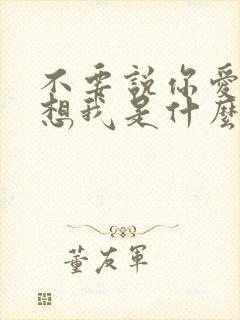 不要說你愛
想我是什麼
董友軍